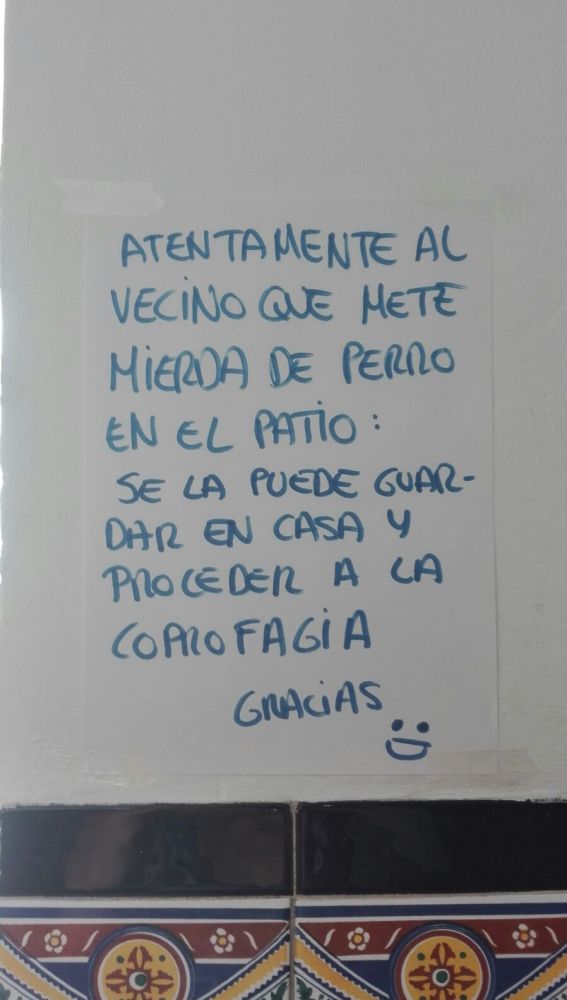 ATENTAMENTE AL
VECINO QUE METE
MIERDA DE PERRO
EN EL PATIO:
SE LA PUEDE GUAR-
DAR EN CASA Y
PROCEDER A LA
COPROFAGIA
GRACIAS